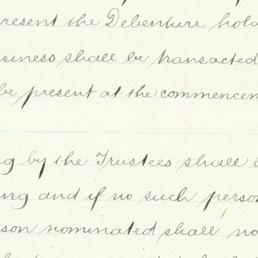 present the Debenture hold
usiness shall be transacted
be present at the commencem
ng by the Trustees shall b
ing and if no such person
son nominated shall no